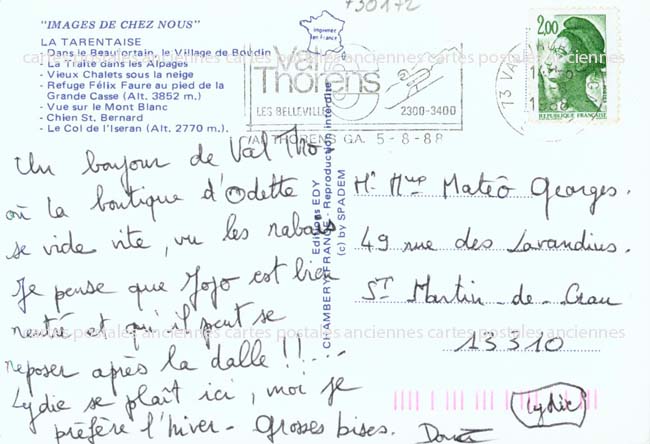 730172
"IMAGES DE CHEZ NOUS"
LA TARENTAISE
- Dans le Beaufortain, le Village de Boudin
- La Traite dans les Alpages
- Vieux Chalets sous la neige
- Refuge Félix Faure au pied de la
Grande Casse (Alt. 3852 m.)
- Vue sur le Mont Blanc
- Chien St. Bernard
- Le Col de l'Iseran (Alt. 2770 m.)
Imprimée
en France
Val
Thorens
LES BELLEVILLE
2300-3400
VAL THORENS GA. 5-8-88
73 VAL
2,00
REPUBLIQUE FRANÇAISE
cartes postales anciennes cartes postales anciennes cartes postales anciennes
Un bonjour de Val Tho
où la boutique d'Odette
se vide vite, vu les rabais
Je pense que Jojo est bien
rentré et qu'il peut se
reposer après la dalle !! ...
Lydie se plaît ici, moi je
préfère l'hiver - Grosses bises.
Lydie
Editions EDY
CHAMBERY FRANCE - Reproduction interdite
(c) by SPADEM
Mr Mme Matéo Georges.
49 rue des Lavandins.
ST Martin-de-Crau
13310
cartes postales anciennes cartes postales anciennes cartes postales anciennes